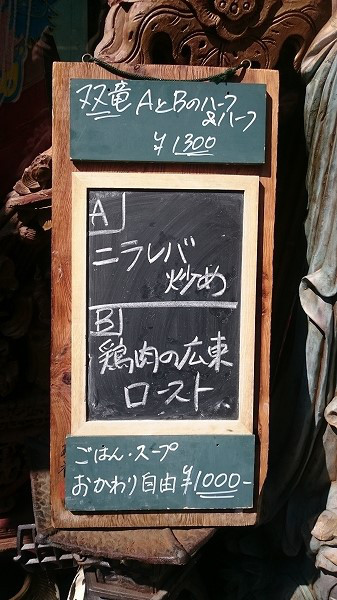 双竜 AとBのハーフ
&ハーフ
¥1300
A
ニラレバ
炒め
B
鶏肉の広東
ロースト
ごはん・スープ
おかわり自由 ¥1000-